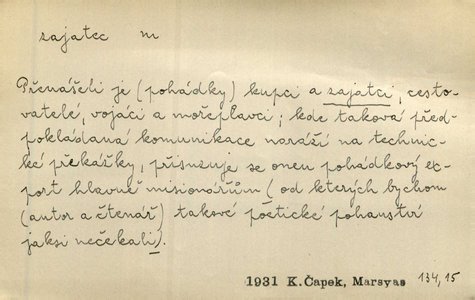 zajatec m
Přenášeli je (pohádky) kupci a zajatci, cesto-
vatelé, vojáci a mořeplavci; kde taková před-
pokládaná komunikace naráží na technic-
ké překážky, přisuzuje se onen pohádkový ex-
port hlavně misionářům (od kterých bychom
(autor a čtenář) takové poetické pohanství
jaksi nečekali).
1931 K.Čapek, Marsyas 134,15